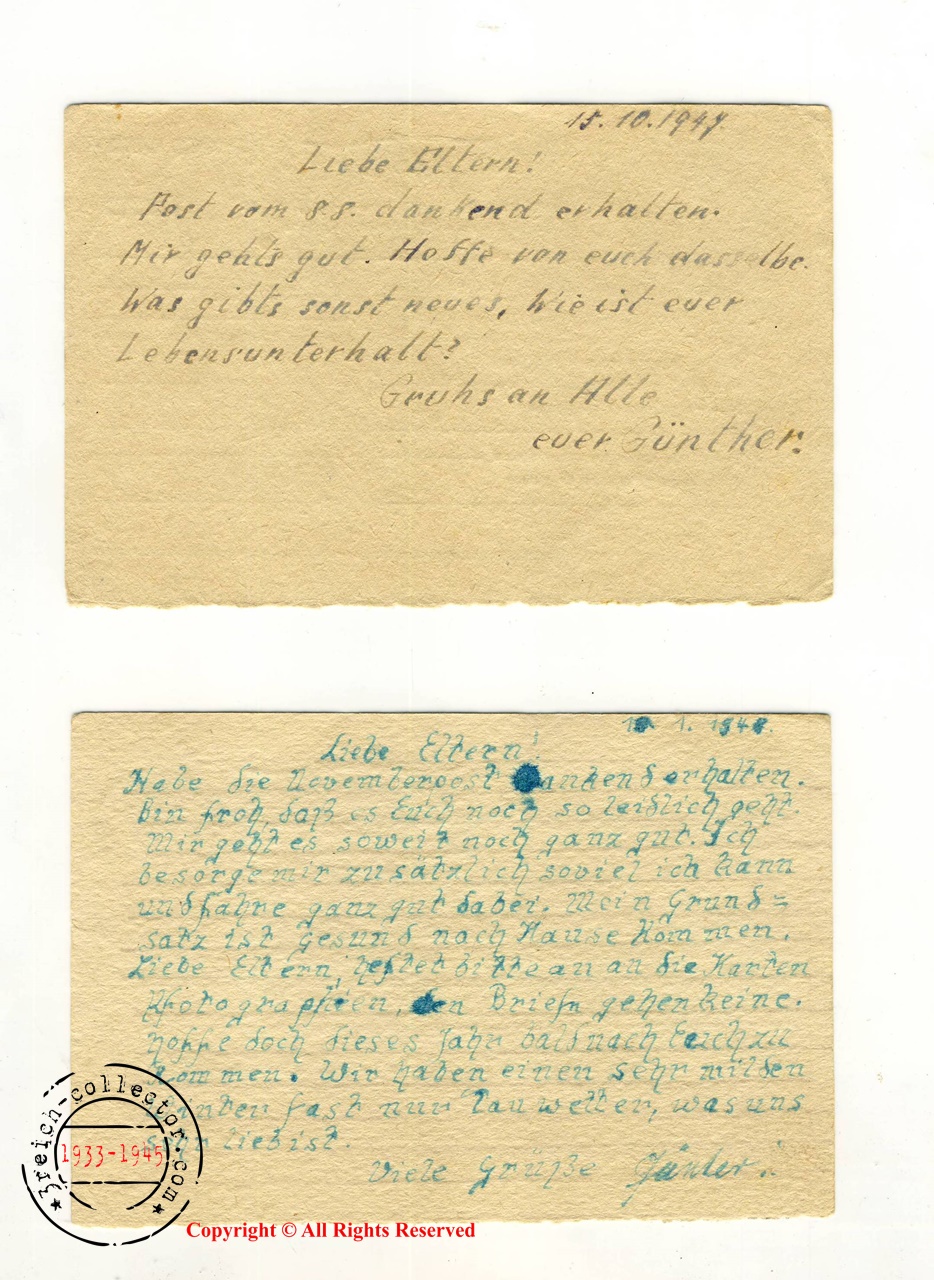 15.10.1947.
Liebe Eltern!
Post vom 8.8. dankend erhalten.
Mir gehts gut. Hoffe von euch dasselbe.
Was gibts sonst neues, Wie ist euer
Lebensunterhalt?
Gruhs an Alle
euer Günther.
1. 1948.
Liebe Eltern!
Habe die Novemberpost dankend erhalten.
Bin froh, daß es Euch noch so leidlich geht.
Mir geht es soweit noch ganz gut. Ich
besorge mir zusätzlich soviel ich kann
und fahre ganz gut dabei. Mein Grund=
satz ist Gesund nach Hause kommen.
Liebe Eltern, heftet bitte an an die Karten
Photographien, den Briefn gehen keine.
hoffe doch dieses Jahr bald nach Euch zu
kommen. Wir haben einen sehr milden
Winter fast nur Tauwetter, was uns
sehr lieb ist.
Viele Grüße Günter.
3reich-collector.com
1933-1945
Copyright © All Rights Reserved